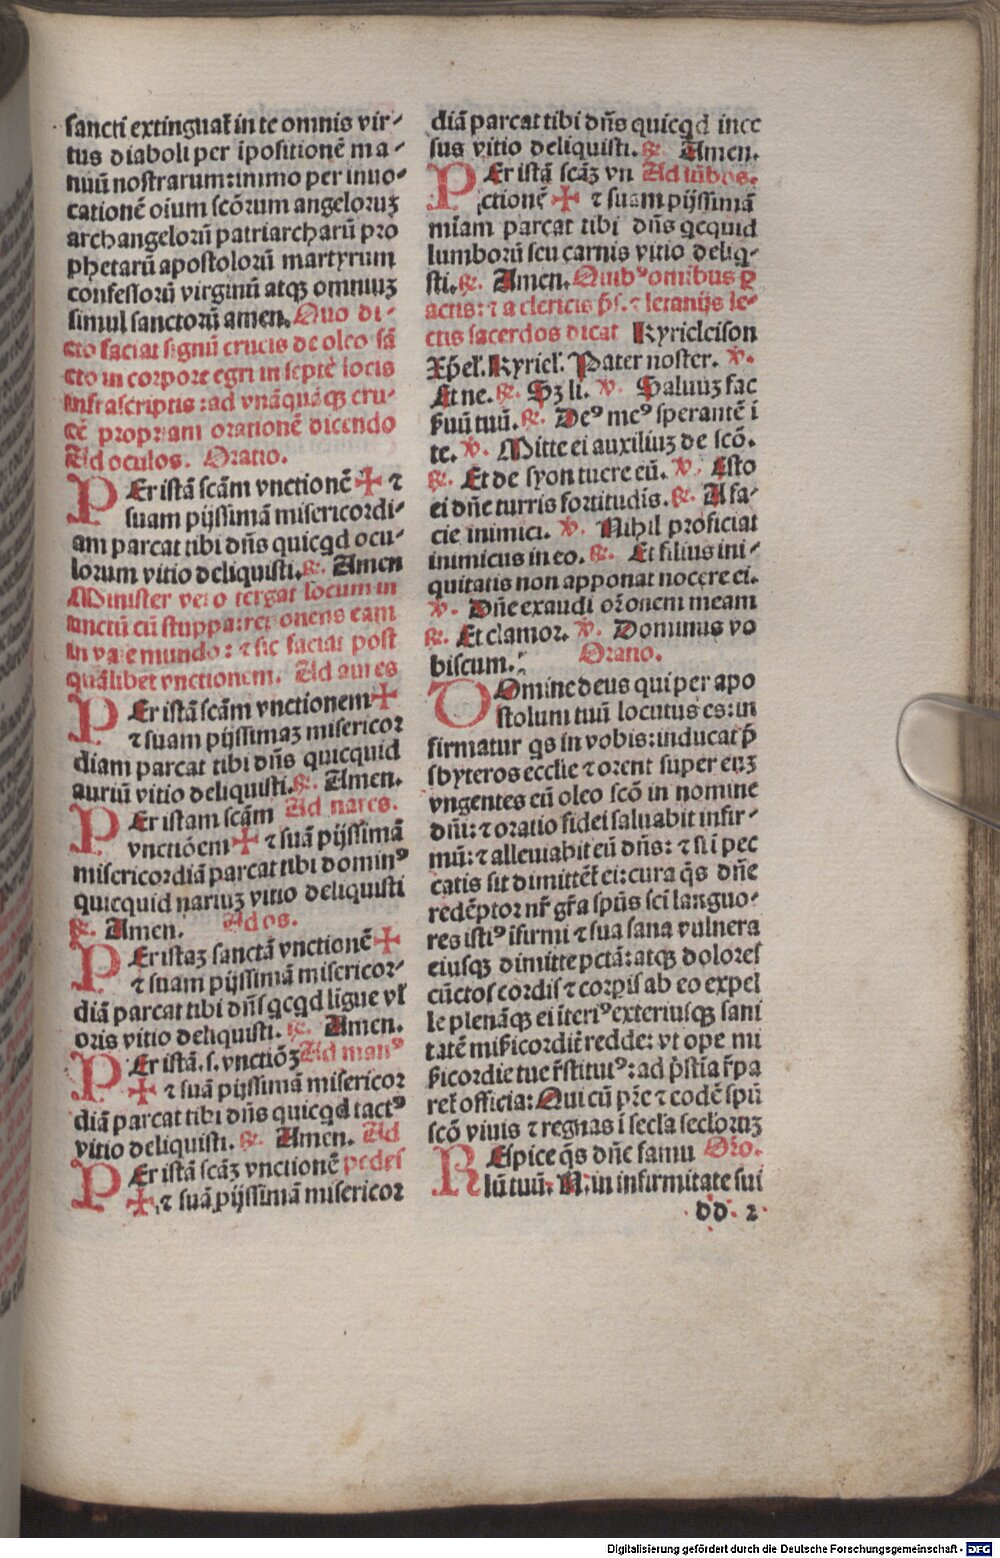 sancti extinguat᷑ in te omnis vir⸗
tus diaboli per īpositionē ma⸗
nuū nostrarum: immo per inuo⸗
cationē oīum scōrum angeloruꝫ
archangelorū patriarcharū pro
phetarū apostolorū martyrum
confessorū virginū atqꝫ omniuꝫ
simul sanctorū amen. Quo di⸗
cto faciat signū crucis de oleo sā
cto in corpore egri in septē locis
infrascriptis: ad vnāquāqꝫ cru⸗
cē propriam orationē dicendo
Ad oculos. Oratio.
PEr istā scām vnctionē ✠ ⁊
suam pijssimā misericordi⸗
am parcat tibi dn̄s quicqd ocu⸗
lorum vitio deliquisti. ℟. Amen
Minister vero tergat locum in
unctū cū stuppa: reponens eam
in vase mundo: ⁊ sic faciat post
quālibet vnctionem. Ad aures
PEr istā scām vnctionem ✠
⁊ suam pijssimaꝫ misericor
diam parcat tibi dn̄s quicquid
auriū vitio deliquisti. ℟. Amen.
PEr istam scām Ad nares.
vnctiōem ✠ ⁊ suā pijssimā
misericordiā parcat tibi dominꝰ
quicquid nariuꝫ vitio deliquisti
℟. Amen. Ad os.
PEr istaꝫ sanctā vnctionē ✠
⁊ suam pijssimā misericor⸗
diā parcat tibi dn̄s qcqd ligue vl̄
oris vitio deliquisti. ℟. Amen.
PEr istā .s. vnctiōꝫ Ad manꝰ
✠ ⁊ suā pijssimā misericor
diā parcat tibi dn̄s quicqd tactꝰ
vitio deliquisti. ℟. Amen. Ad
PEr istā scāꝫ vnctionē pedes
✠ ⁊ suā pijssimā misericor
diā parcat tibi dn̄s quicqd ince
sus vitio deliquisti. ℟. Amen.
PEr istā scāꝫ vn Ad lūbos.
ctionē ✠ ⁊ suam pijssimā
mīam parcat tibi dn̄s qcquid
lumborū seu carnis vitio deliq⸗
sti. ℟. Amen. Quibꝰ omībus ꝑ
actis: ⁊ a clericis p̄s. ⁊ letanijs le⸗
ctis sacerdos dicat Kyrieleison
Xp̄el̄. Kyriel̄. Pater noster. ℣.
Et ne. ℟. Sꝫ li. ℣. Saluuꝫ fac
ẜuū tuū. ℟. Deꝰ meꝰ sperantē ī
te. ℣. Mitte ei auxiliuꝫ de scō.
℟. Et de syon tuere eū. ℣. Esto
ei dn̄e turris fortitudis. ℟. A fa⸗
cie inimici. ℣. Nihil proficiat
inimicus in eo. ℟. Et filius ini⸗
quitatis non apponat nocere ei.
℣. Dn̄e exaudi or̄onem meam
℟. Et clamor. ℣. Dominus vo
biscum. Oratio.
DOmine deus qui per apo
stolum tuū locutus es: in
firmatur qs in vobis: inducat p̄
sbyteros ecclīe ⁊ orent super euꝫ
vngentes eū oleo scō in nomine
dn̄i: ⁊ oratio fidei saluabit infir⸗
mū: ⁊ alleuiabit eū dn̄s: ⁊ si ī pec
catis sit dimittēt᷑ ei: cura q̄s dn̄e
redēptor nr̄ gr̄a sp̄us sci languo⸗
res istiꝰ īfirmi ⁊ sua sana vulnera
eiusqꝫ dimitte pctā: atqꝫ dolores
cūctos cordis ⁊ corpis ab eo expel
le plenāqꝫ ei īteriꝰ exteriusqꝫ sani
tatē miẜicordiē redde: vt ope mi
ẜicordie tue r̄stitutꝰ: ad p̄stīa r̄pa
ret᷑ officia: Qui cū pr̄e ⁊ eodē spū
scō viuis ⁊ regnas ī secl̄a seclōruꝫ
REspice q̄s dn̄e famu Oro̅.
lū tuū. N. in infirmitate sui
dd. 2
Digitalisierung gefördert durch die Deutsche Forschungsgemeinschaft - DFG